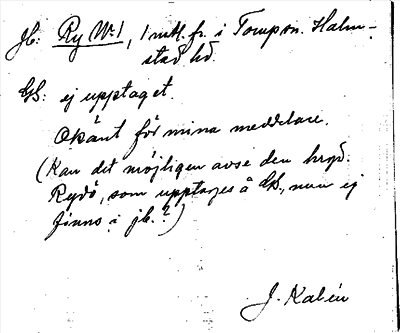 Jb: Ry № 1, 1 mtl. fr. i Tompsn. Halm-
stad hd.
GS: ej upptaget.
Okänt för mina meddelare.
(Kan det möjligen avse den
Rydö, som upptages å GS, men ej
finns i jb.?)
J. Kalén